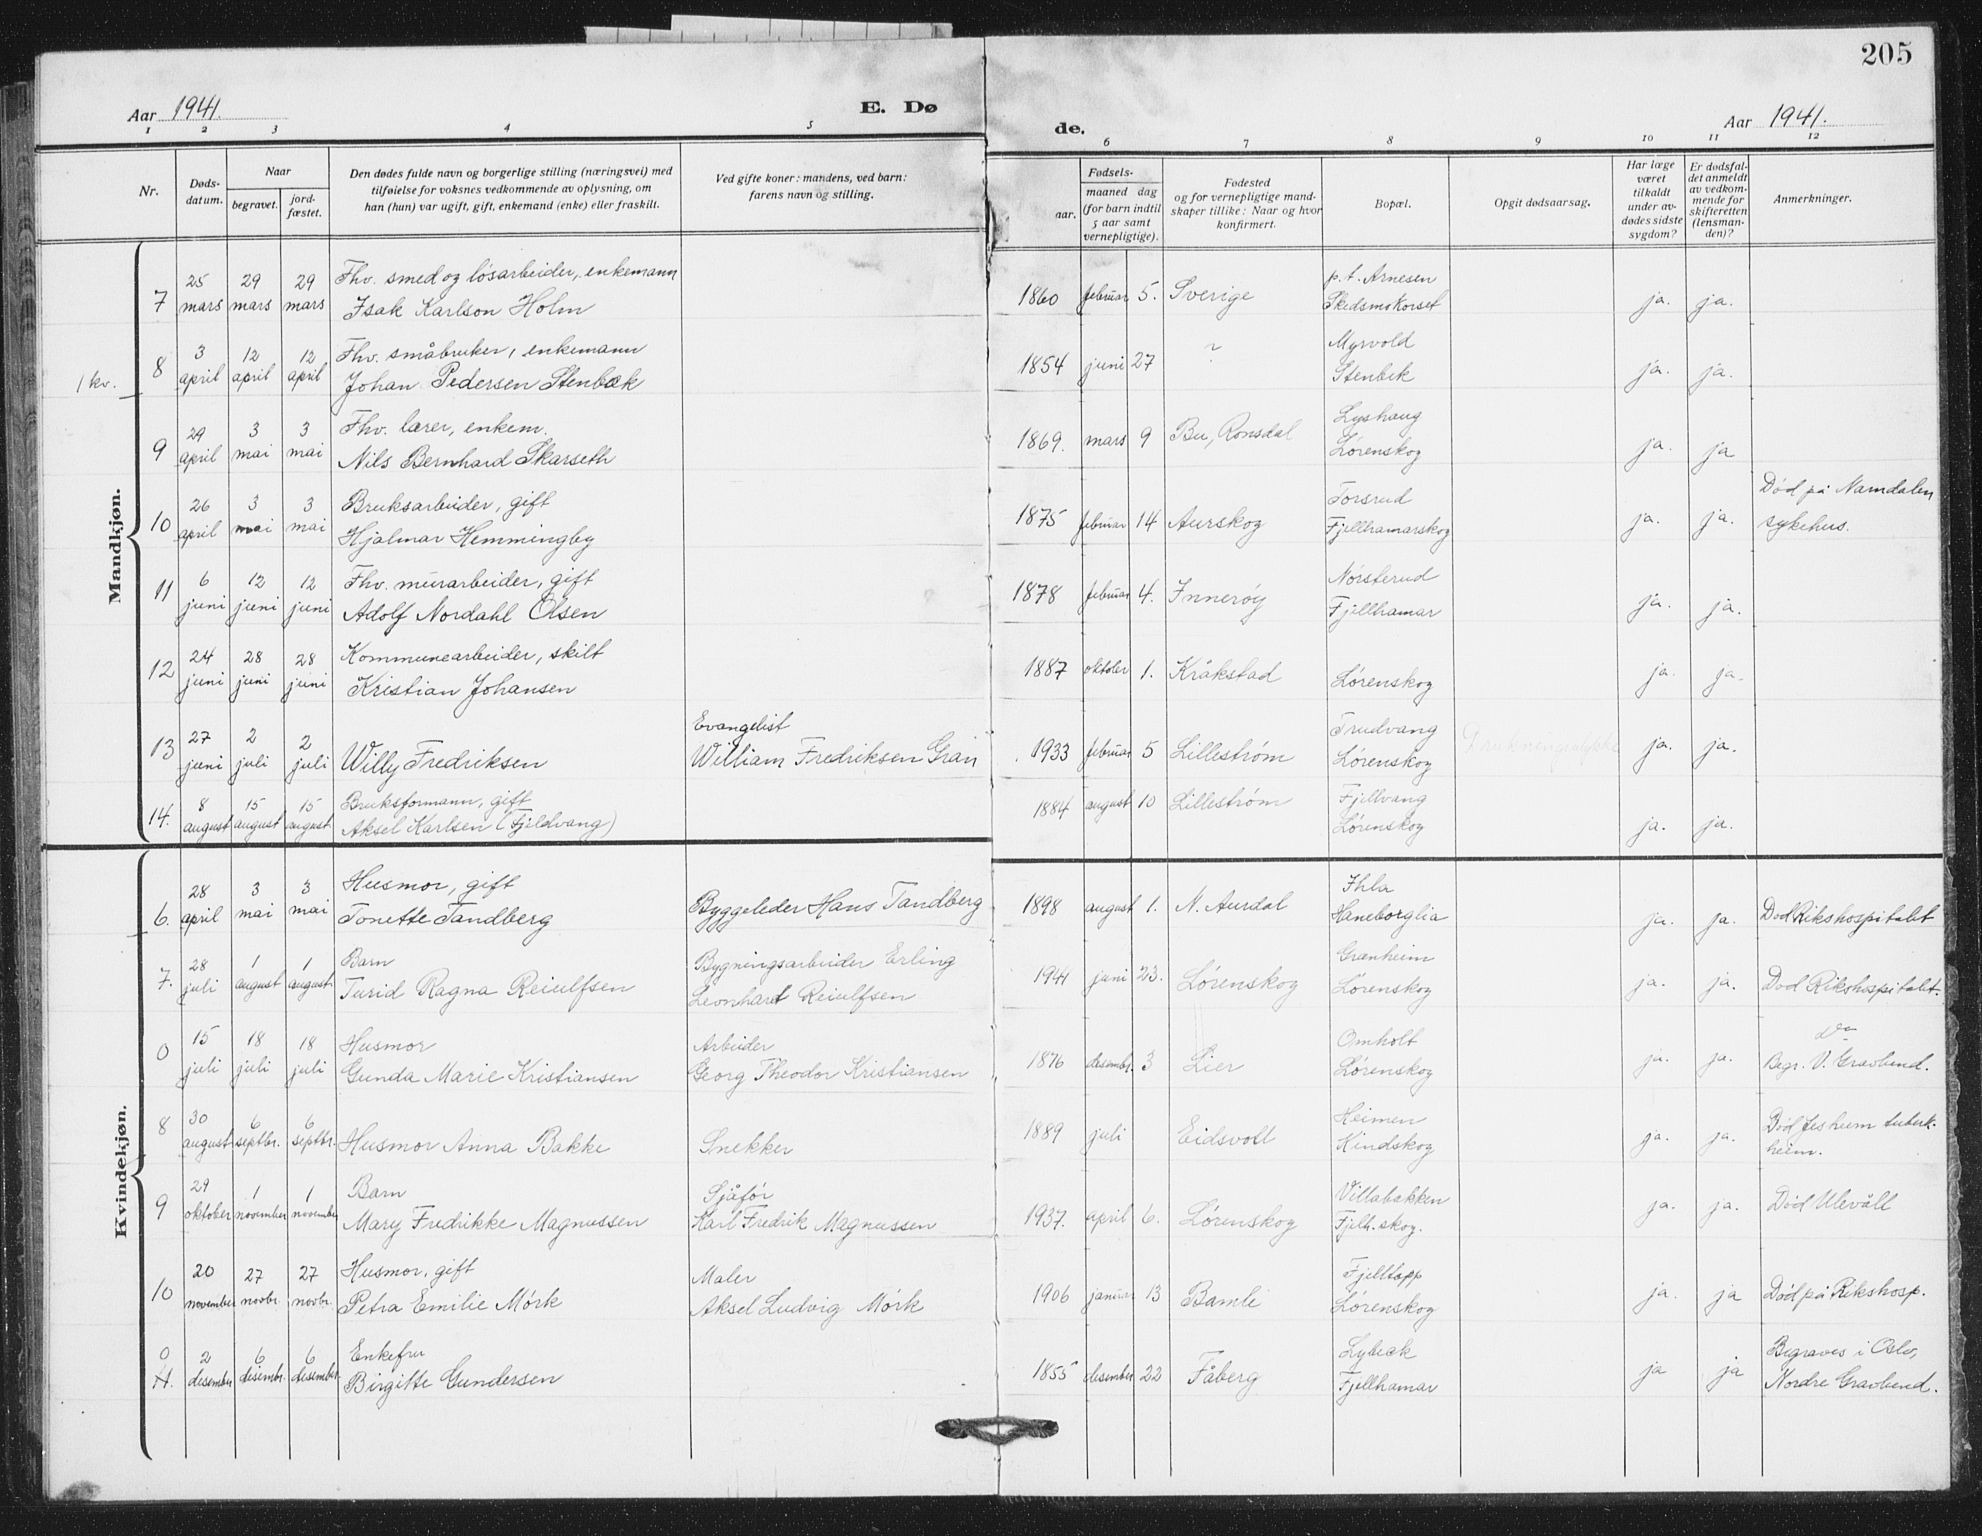 205
Aar 1941. E. Dø de. Aar 1941.
1 2 3 4 5 6 7 8 9 10 11 12
Nr.
Døds-
datum.
Naar
begravet.
jord-
fæstet.
Den dødes fulde navn og borgerlige stilling (næringsvei) med
tilføielse for voksnes vedkommende av oplysning, om
han (hun) var ugift, gift, enkemand (enke) eller fraskilt.
Ved gifte koner: mandens, ved barn:
farens navn og stilling.
Fødsels-
aar.
maaned dag
(for barn indtil
5 aar samt
vernepligtige).
Fødested
og for vernepligtige mand-
skaper tillike: Naar og hvor
konfirmert.
Bopæl.
Opgit dødsaarsag.
Har læge
været
tilkaldt
under av-
dødes sidste
sygdom?
Er dødsfal-
det anmeldt
av vedkom-
mende for
skifteretten
(lensman-
den)?
Anmerkninger.
Mandkjøn.
25 29 29 Fhv. smed og løsarbeider, enkemann p.t. Arnesen
7 mars mars mars Isak Karlson Holm 1860 februar 5. Sverige Skedsmokorset ja. ja.
3 12 12 Fhv. småbruker, enkemann ? Myrvold
1 kv. 8 april april april Johan Pedersen Stenbæk 1854 juni 27 Stenbek ja. ja.
29 3 3 Fhv. lærer, enkem. Lyshaug
9 april mai mai Nils Bernhard Skarseth 1869. mars 9 Bu, Romsdal Lørenskog ja. ja
26 3 3 Bruksarbeider, gift Torsrud Død på Namdalen
10 april mai mai Hjalmar Hemmingby 1875 februar 14 Aurskog Fjellhamarskog ja. ja. sykehus.
6 12 12 Fhv. murarbeider, gift Nørsterud
11 juni juni juni Adolf Nordahl Olsen 1878 februar 4. Inderøy Fjellhamar ja. ja.
24 28 28 Kommunearbeider, skilt
12 juni juni juni Kristian Johansen 1887 oktober 1. Kråkstad Lørenskog ja. ja.
27 2 2 Evangelist Trudvang
13 juni juli juli Willy Fredriksen William Fredriksen Gran 1933 februar 5 Lillestrøm Lørenskog Drukningsulykke ja. ja.
8 15 15 Bruksformann, gift Fjellvang
14. august august august Aksel Karlsen (Fjeldvang) 1884 august 10 Lillestrøm Lørenskog ja. ja.
Kvindekjøn.
28 3 3 Husmor, gift Ihla
6. april mai mai Tonette Tandberg Byggeleder Hans Tandberg 1898 august 1. N. Aurdal Haneborglia ja. ja. Død Rikshospitalet
28 1 1 Barn Bygningsarbeider Erling Granheim
7. juli august august Turid Ragna Reiulfsen Leonhart Reiulfsen 1941 juni 23. Lørenskog Lørenskog ja. ja. Død Rikshospitalet.
15 18 18 Husmor Arbeider Omholt
0 juli juli juli Gunda Marie Kristiansen Georg Theodor Kristiansen 1876 desembr. 3 Lier Lørenskog ja. ja. Begr. V. Gravlund.
30 6 6 Heimen Død Jesheim tuberk.
8 august septbr. septbr. Husmor Anna Bakke Snekker 1889 juli Eidsvoll Kindskog ja. ja. heim.
29 1 1 Barn Sjåfør Villabakken
9 oktober november november Mary Fredrikke Magnussen Karl Fredrik Magnussen 1937. april 6. Lørenskog Fjelh.skog. ja. ja. Død Ulevåll
20 27 27 Husmor, gift Maler Fjelltopp
10 november novbr. novbr. Petra Emilie Mørk Aksel Ludvig Mørk 1906 januar 13 Bamle Lørenskog ja. ja Død på Rikshosp.
0 2 6 6 Enkefru Lybæk Begraves i Oslo,
11. desember desembr. desember Birgitte Gundersen 1855 desember 22 Fåberg Fjellhamar ja ja Nordre Gravlund.